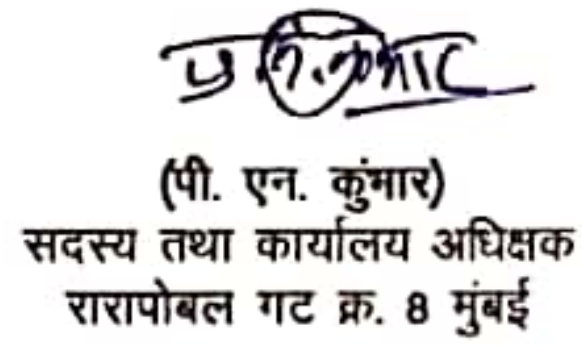 (पी. एन. कुंमार)
सदस्य तथा कार्यालय अधिक्षक
रारापोबल गट क्र. 8 मुंबई